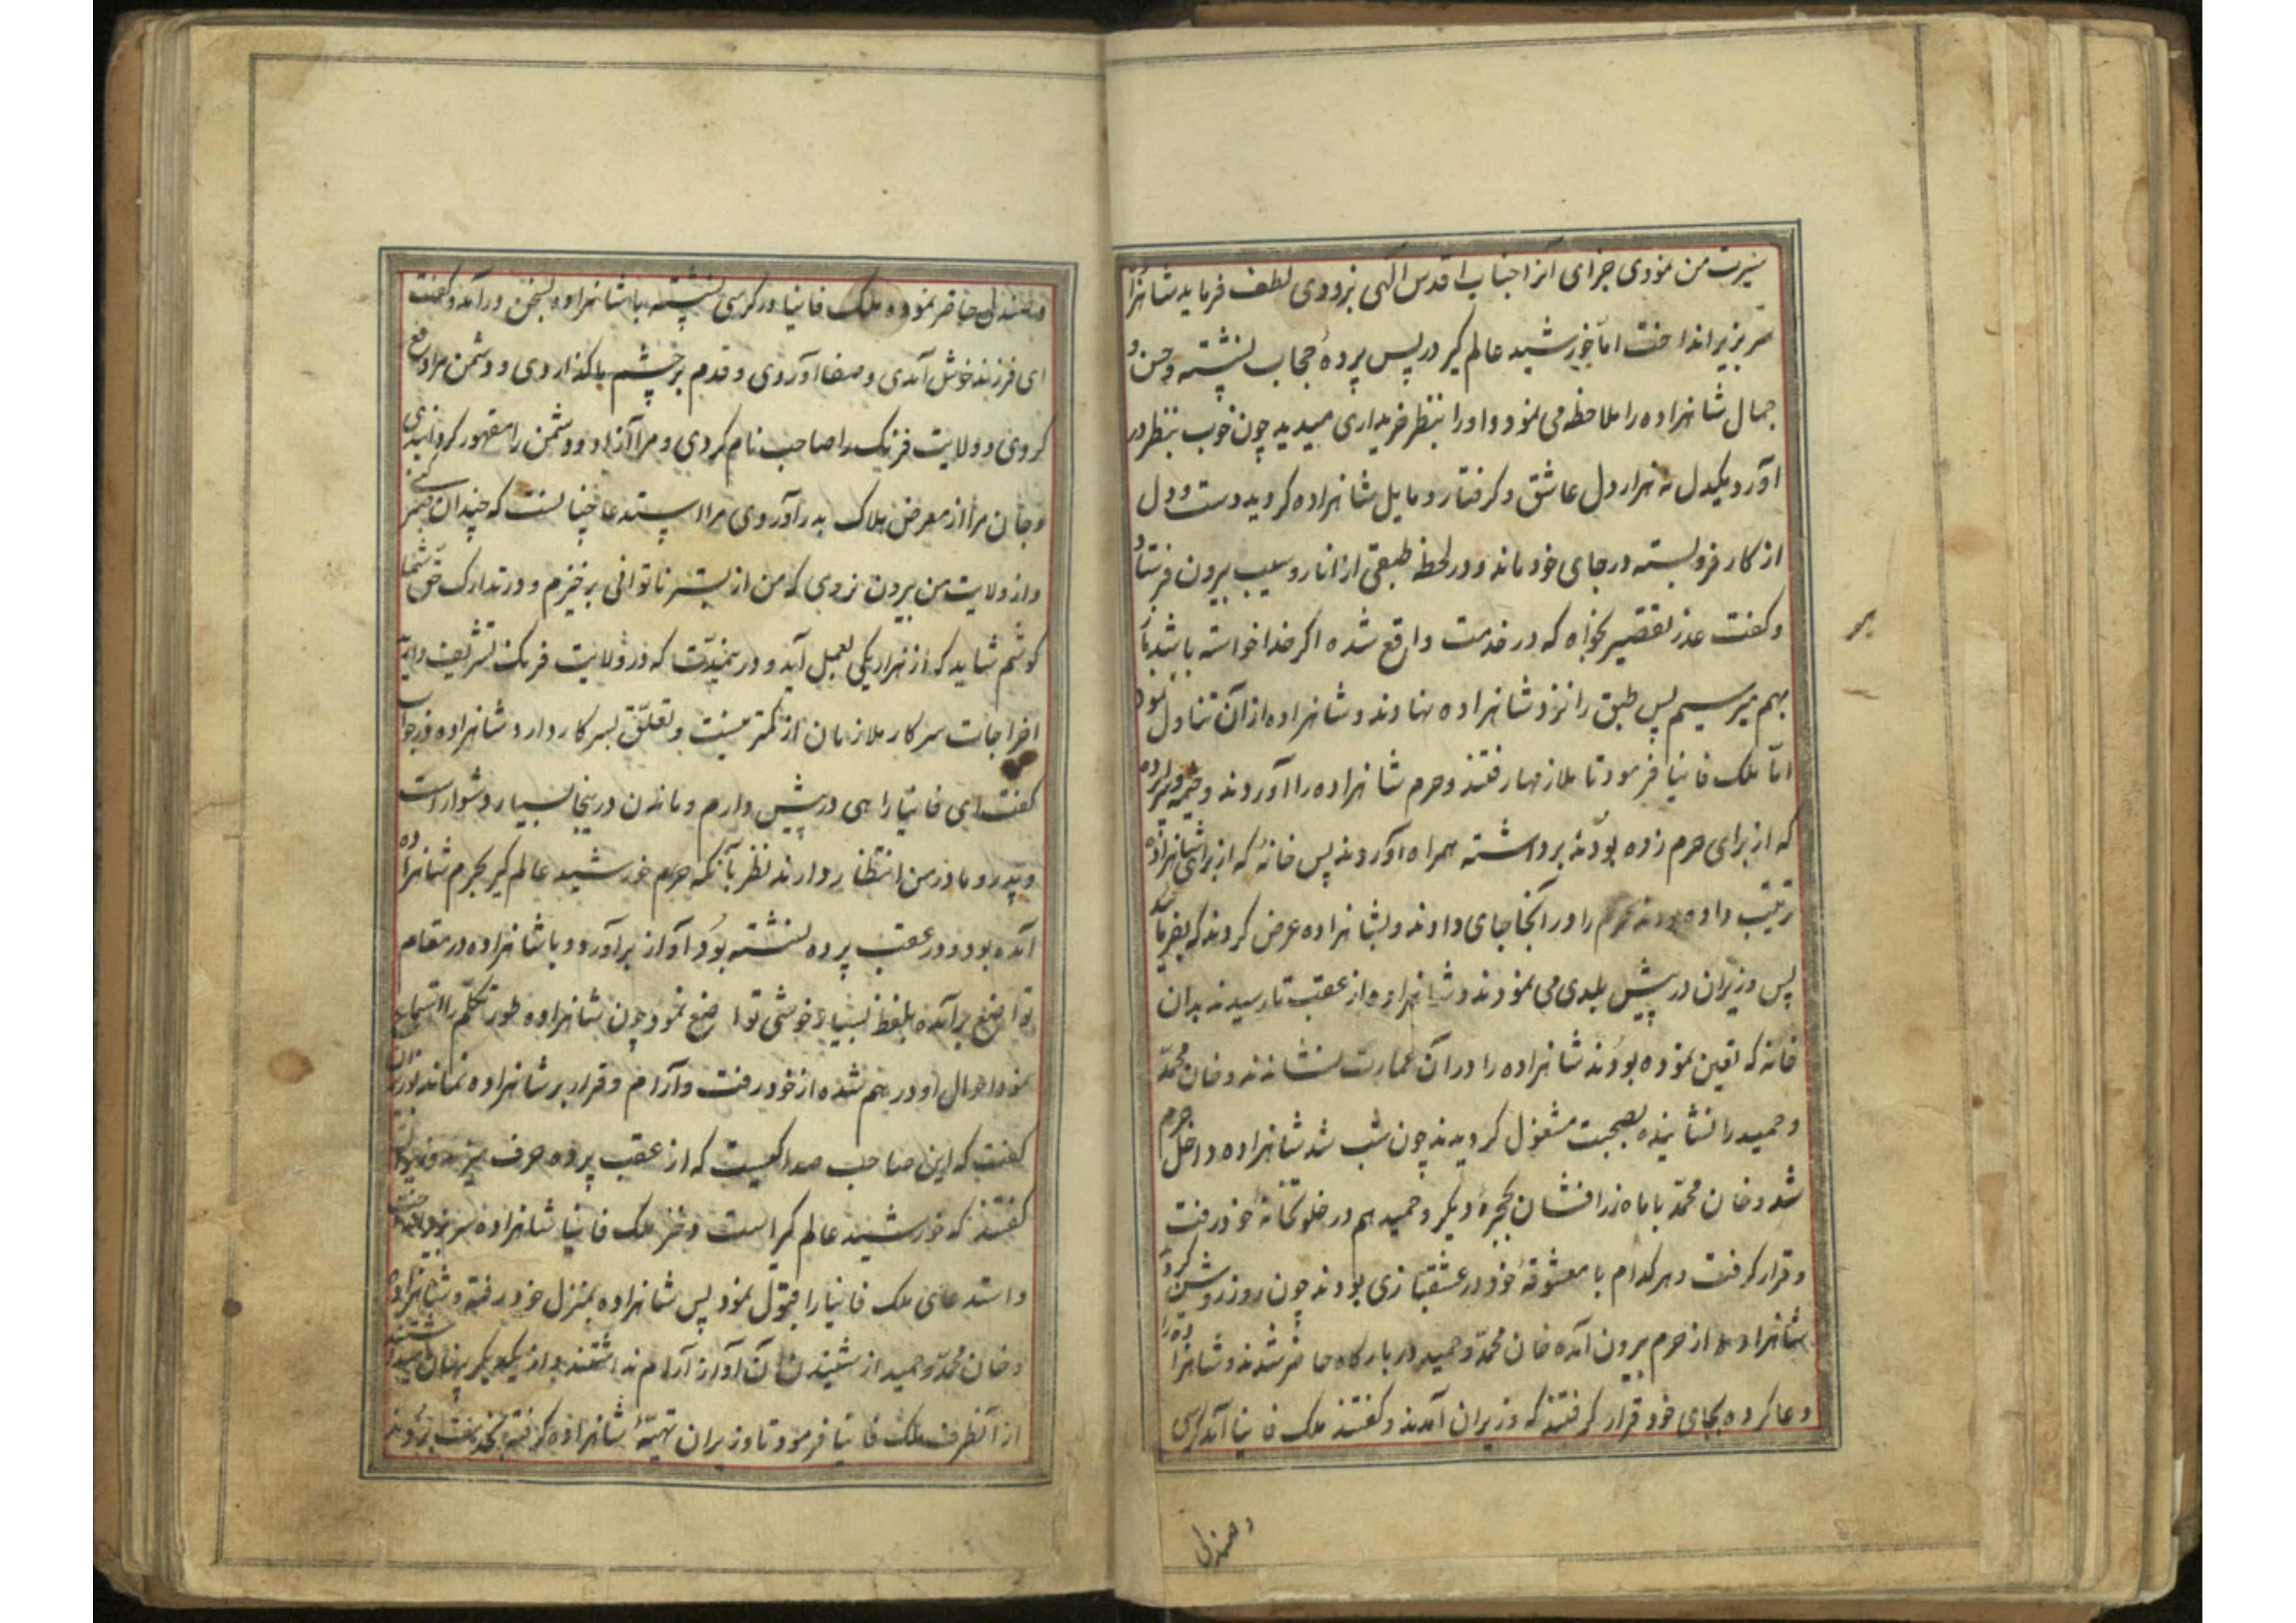 سیرت من نمودی جزای آنرا جناب اقدس الهی بزودی لطف فرماید شاهزاده
سر بزیر انداخت اما خورشید عالم کیر در پس پردهٔ حجاب نشسته و حسن و
جمال شاهزاده را ملاحظه می نمود و او را بنظر خریداری میدید چون خوب بنظر در
آورد یکدل نه هزار دل عاشق و کرفتار و مایل شاهزاده کردید دست و دل
از کار فرو بسته در جای خود ماند و در لحظه طبقی از انار و سیب بیرون فرستاد
و کفت عذر تقصیر بخواه که در خدمت واقع شده اکر خدا خواسته باشد باز
بهم میرسیم پس طبق را نزد شاهزاده نهادند و شاهزاده از آن تناول نمود
اما ملک فانیا فرمود تا ملازمها رفتند و حرم شاهزاده را آوردند و خیمه و سراپرده
که از برای حرم زده بودند برداشته همراه آوردند پس خانهٔ که از برای شاهزاده
ترتیب داده بودند حرم را در آنجا جای دادند و بشاهزاده عرض کردند که بفرمائید
پس وزیران در پیش بلدی می نمودند و شاهزاده از عقب تا رسیدند بدان
خانه که تعین نموده بودند شاهزاده را در آن عمارت نشاندند و خان محمد
و حمید را نشانیده بصحبت مشغول کردیدند چون شب شد شاهزاده داخل حرم
شد و خان محمد با ماه زرافشان بحجرهٔ دیکر و حمید هم در خلوتخانهٔ خود رفت
و قرار کرفت و هر کدام با معشوقهٔ خود در عشقبازی بودند چون روز روشن کرد
شاهزاده از حرم بیرون آمده خان محمد و حمید در بارکاه حاضر شدند و شاهزاده را
دعا کرده بجای خود قرار کرفتند که وزیران آمدند و کفتند ملک فانیا آمد کرسی
و صندلی
و صندلی حاضر نموده ملک فانیا در کرسی نشسته با شاهزاده بسخن درآمد و کفت
ای فرزند خوش آمدی و صفا آوردی و قدم بر چشم ما کذاردی و دشمن مرا دفع
کردی و ولایت فرنک را صاحب نام کردی و مرا آزاد و دشمن را مقهور کردانیدی
و جان مرا از معرض هلاک بدر آوردی مرا استدعا چنانست که چندان صبر کنی
و از ولایت من بیرون نروی که من از بستر ناتوانی برخیزم و در تدارک حق شما
کوشم شاید که از هزار یکی بعمل آید و در هر مدت که در ولایت فرنک تشریف دارید
اخراجات سرکار ملازمان از کمترینست و تعلق بسرکار دارد شاهزاده در جواب
کفت ای فانیا راهی در پیش دارم و ماندن در اینجا بسیار دشوار است
و پدر و مادر من انتظار دارند نظر بآنکه حرم خورشید عالم کیر بحرم شاهزاده
آمده بود و در عقب پرده نشسته بود آواز برآورد و با شاهزاده در مقام
تواضع برآمده بلفظ بسیار خوشی تواضع نمود چون شاهزاده طور تکلم را استماع
نمود احوال او در هم شده از خود رفت و آرام و قرار بر شاهزاده نماند
کفت که این صاحب صدا کیست که از عقب پرده حرف میزند وزیران
کفتند که خورشید عالم کیر است دختر ملک فانیا شاهزاده سر بزیر انداخت
و استدعای ملک فانیا را قبول نمود پس شاهزاده بمنزل خود رفته و شاهزاده
و خان محمد و حمید از شنیدن آن آواز آرام نداشتند و از یکدیکر پنهان میداشتند
از آنطرف ملک فانیا فرمود تا وزیران تهیهٔ شاهزاده کرفته بخدمت بردند